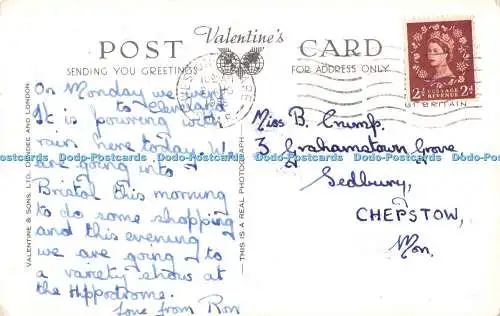 Valentine's
POST CARD
SENDING YOU GREETINGS
FOR ADDRESS ONLY
On Monday we went
to Cleveland
It is pouring with
rain here today. We
are going into
Bristol this morning
to do some shopping
and this evening
we are going to
a variety show at
the Hippodrome.
Love from Ron
VALENTINE & SONS. LTD. DUNDEE AND LONDON
— THIS IS A REAL PHOTOGRAPH —
Miss B. Crump.
3 Grahamstown Grove
Sedbury,
CHEPSTOW,
Mon.
POSTAGE
REVENUE
2d 2d
BRITAIN
Dodo-Postcards Dodo-Postcards Dodo-Postcards Dodo-Postcards Dodo-Postcards Dodo-Postcards Dodo-Postcards